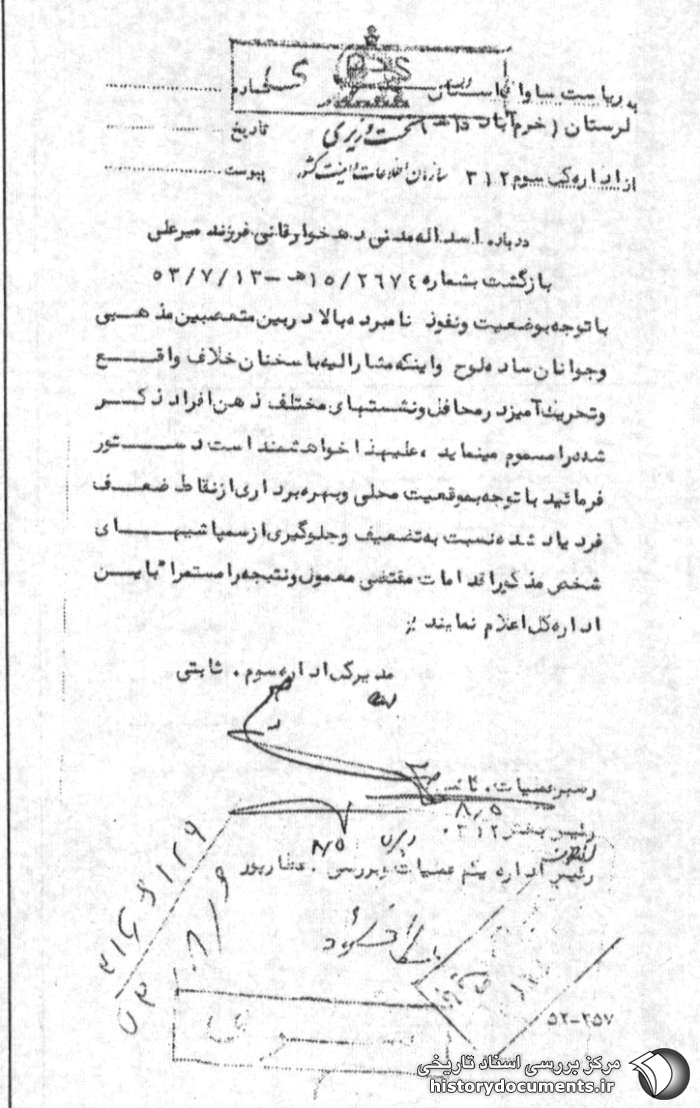 به ریاست ساواک استان
لرستان (خرم‌آباد)
از اداره کل سوم ۳۱۲
نخست وزیری
سازمان اطلاعات و امنیت کشور
شماره
تاریخ
پیوست
درباره اسداله مدنی دهخوارقانی فرزند میرعلی
بازگشت بشماره ۱۵/۲۶۷٤هـ - ۵۳/۷/۱۳
با توجه بوضعیت و نفوذ نامبرده بالا در بین متعصبین مذهبی
و جوانان ساده لوح و اینکه مشارالیه با سخنان خلاف واقع
و تحریف آمیز در محافل و نشستهای مختلف ذهن افراد ذکر
شده را مسموم مینماید، علیهذا خواهشمند است دستور
فرمائید با توجه بموقعیت محلی و بهره برداری از نقاط ضعف
فرد یاد شده نسبت به تضعیف و جلوگیری از سمپاشیهای
شخص مذکور اقدامات مقتضی معمول و نتیجه را مستمرا" باین
اداره کل اعلام نمایند
مدیر کل اداره سوم. ثابتی
رهبر عملیات.
۸/۵
رئیس بخش ۳۱۲.
۸/۵
رئیس اداره یکم عملیات و بررسی. عطارپور
۵۲-۲۵۷
مرکز بررسی اسناد تاریخی
historydocuments.ir